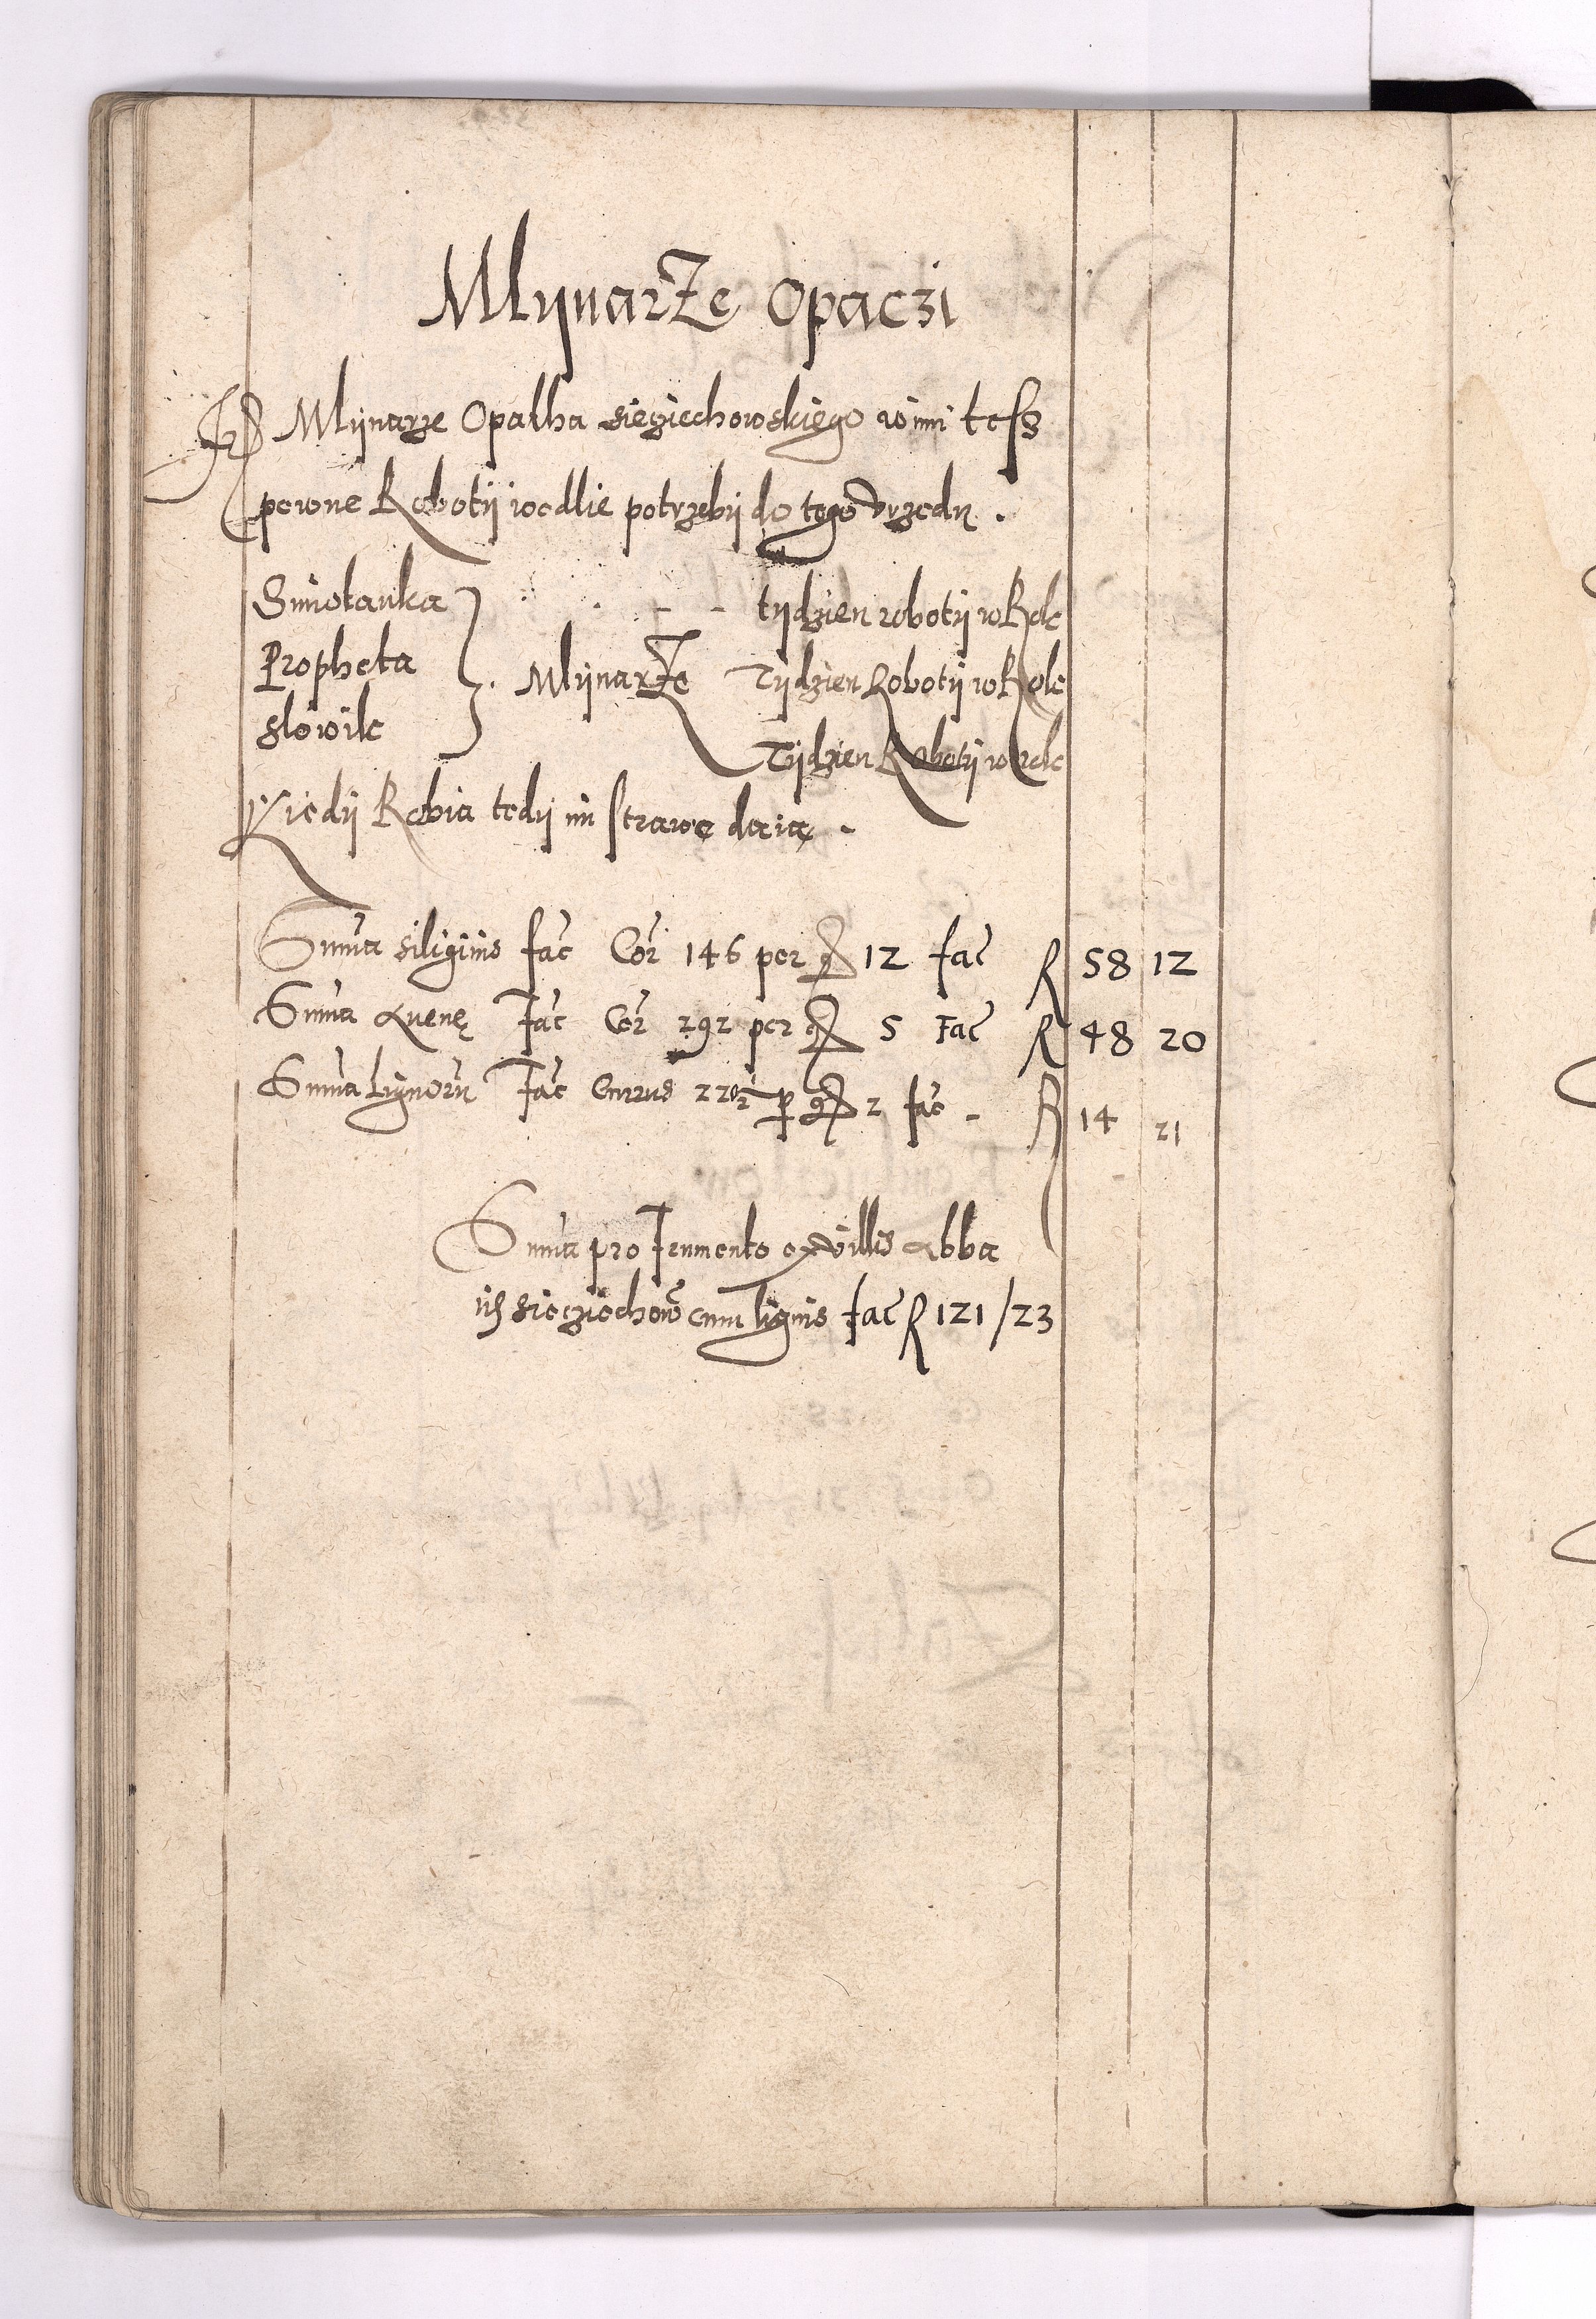 MlijnarZe Opaczi
Mlijnarze Opatha sieziechowskiego winni tesz
pewne Robotij wedlie potrzebij do tego Vrzędu .
Smiotanka } . . - - tijdzien robotij wRok
Propheta } . MlijnarZe Tijdzien Robotij wRok
slowik } Tijdzien Robotij w rok
Kiedij Robia tedij im strawę daią .
Suma siliginis fac Cor 146 per g 12 fac R 58 12
Suma Auenę Fac Cor 292 per g 5 Fac R 48 20
Suma Lignorū Fac Currus 220 1/2 p g 2 fac - R 14 21
Suma pro Frumento ex villis Abba
iis sieciechow cum lignis fac R 121 / 23